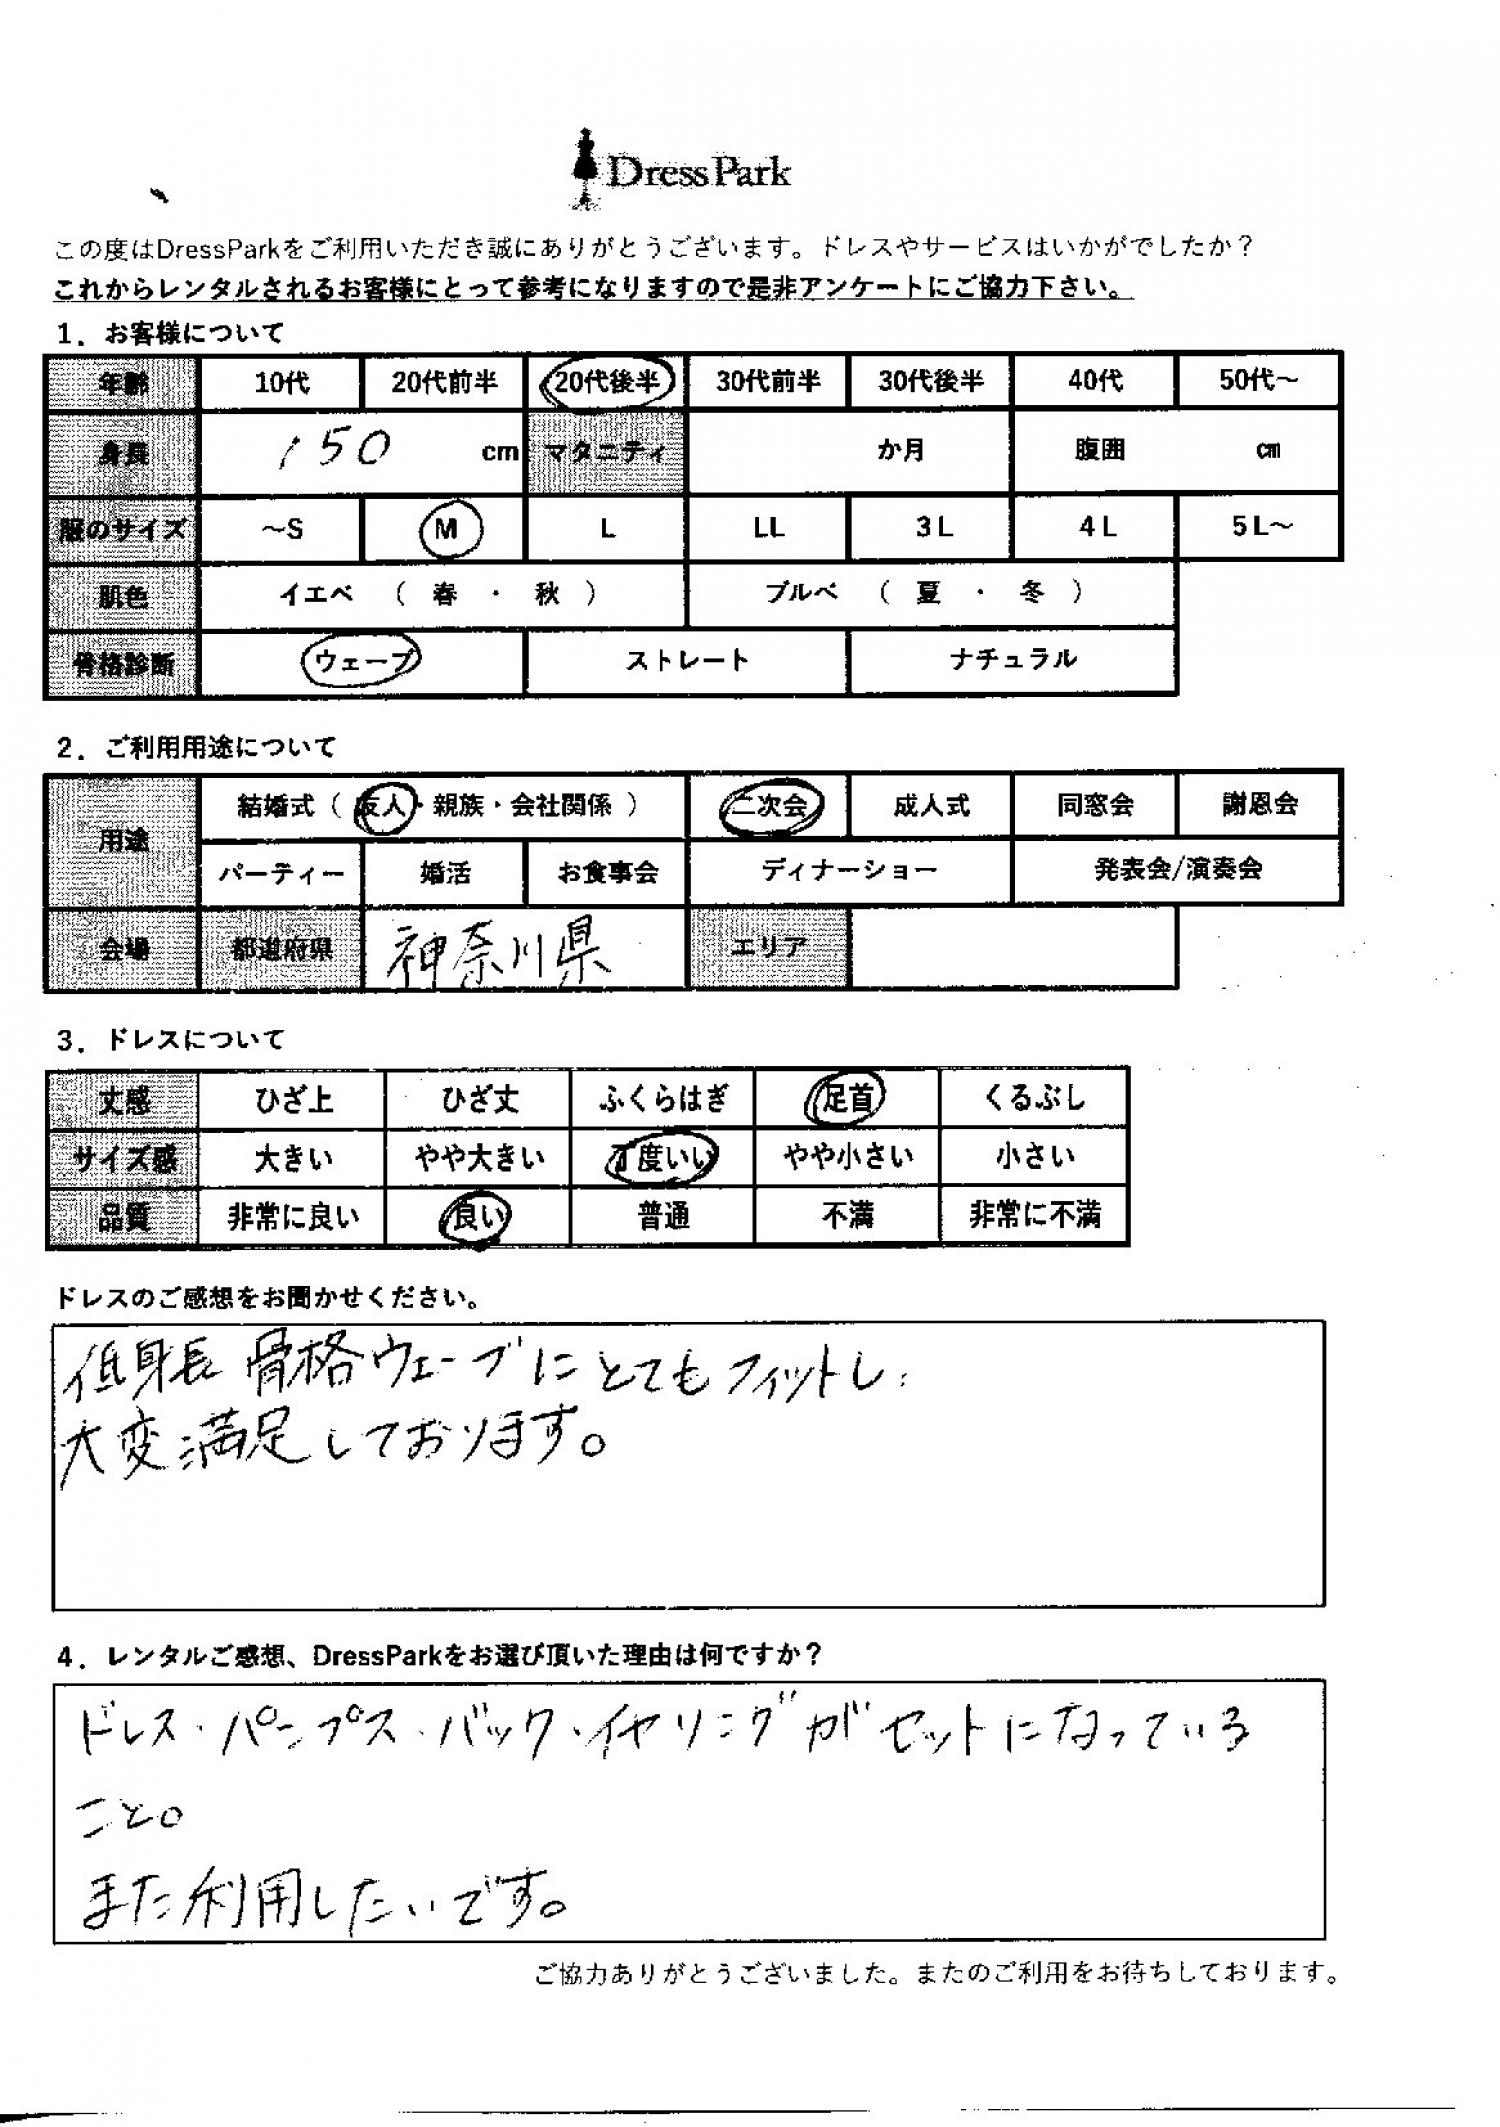 DressPark
この度はDressParkをご利用いただき誠にありがとうございます。ドレスやサービスはいかがでしたか？
これからレンタルされるお客様にとって参考になりますので是非アンケートにご協力下さい。
1．お客様について
年齢 10代 20代前半 20代後半 30代前半 30代後半 40代 50代～
身長 150 cm マタニティ か月 腹囲 cm
服のサイズ ～S M L LL 3L 4L 5L～
肌色 イエベ （ 春 ・ 秋 ） ブルベ （ 夏 ・ 冬 ）
骨格診断 ウェーブ ストレート ナチュラル
2．ご利用用途について
用途 結婚式（ 友人・親族・会社関係 ） 二次会 成人式 同窓会 謝恩会
パーティー 婚活 お食事会 ディナーショー 発表会/演奏会
会場 都道府県 神奈川県 エリア
3．ドレスについて
丈感 ひざ上 ひざ丈 ふくらはぎ 足首 くるぶし
サイズ感 大きい やや大きい 丁度いい やや小さい 小さい
品質 非常に良い 良い 普通 不満 非常に不満
ドレスのご感想をお聞かせください。
低身長 骨格ウェーブにとてもフィットし、
大変満足しております。
4．レンタルご感想、DressParkをお選び頂いた理由は何ですか？
ドレス・パンプス・バック・イヤリングがセットになっている
こと。
また利用したいです。
ご協力ありがとうございました。またのご利用をお待ちしております。